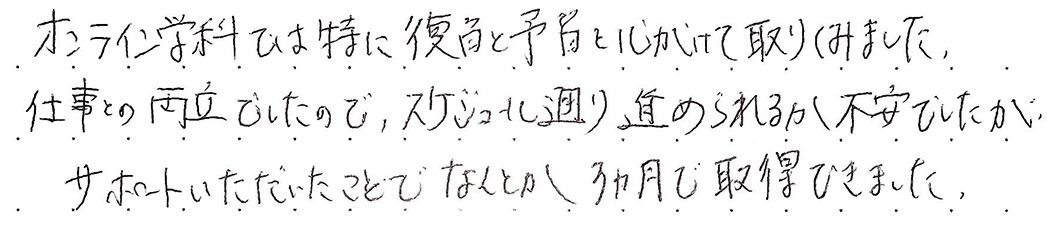 オンライン学科では特に復習と予習と心がけて取りくみました。
仕事との両立でしたので、スケジュール通り進められるか不安でしたが、
サポートいただいたことでなんとか3ヵ月で取得できました。